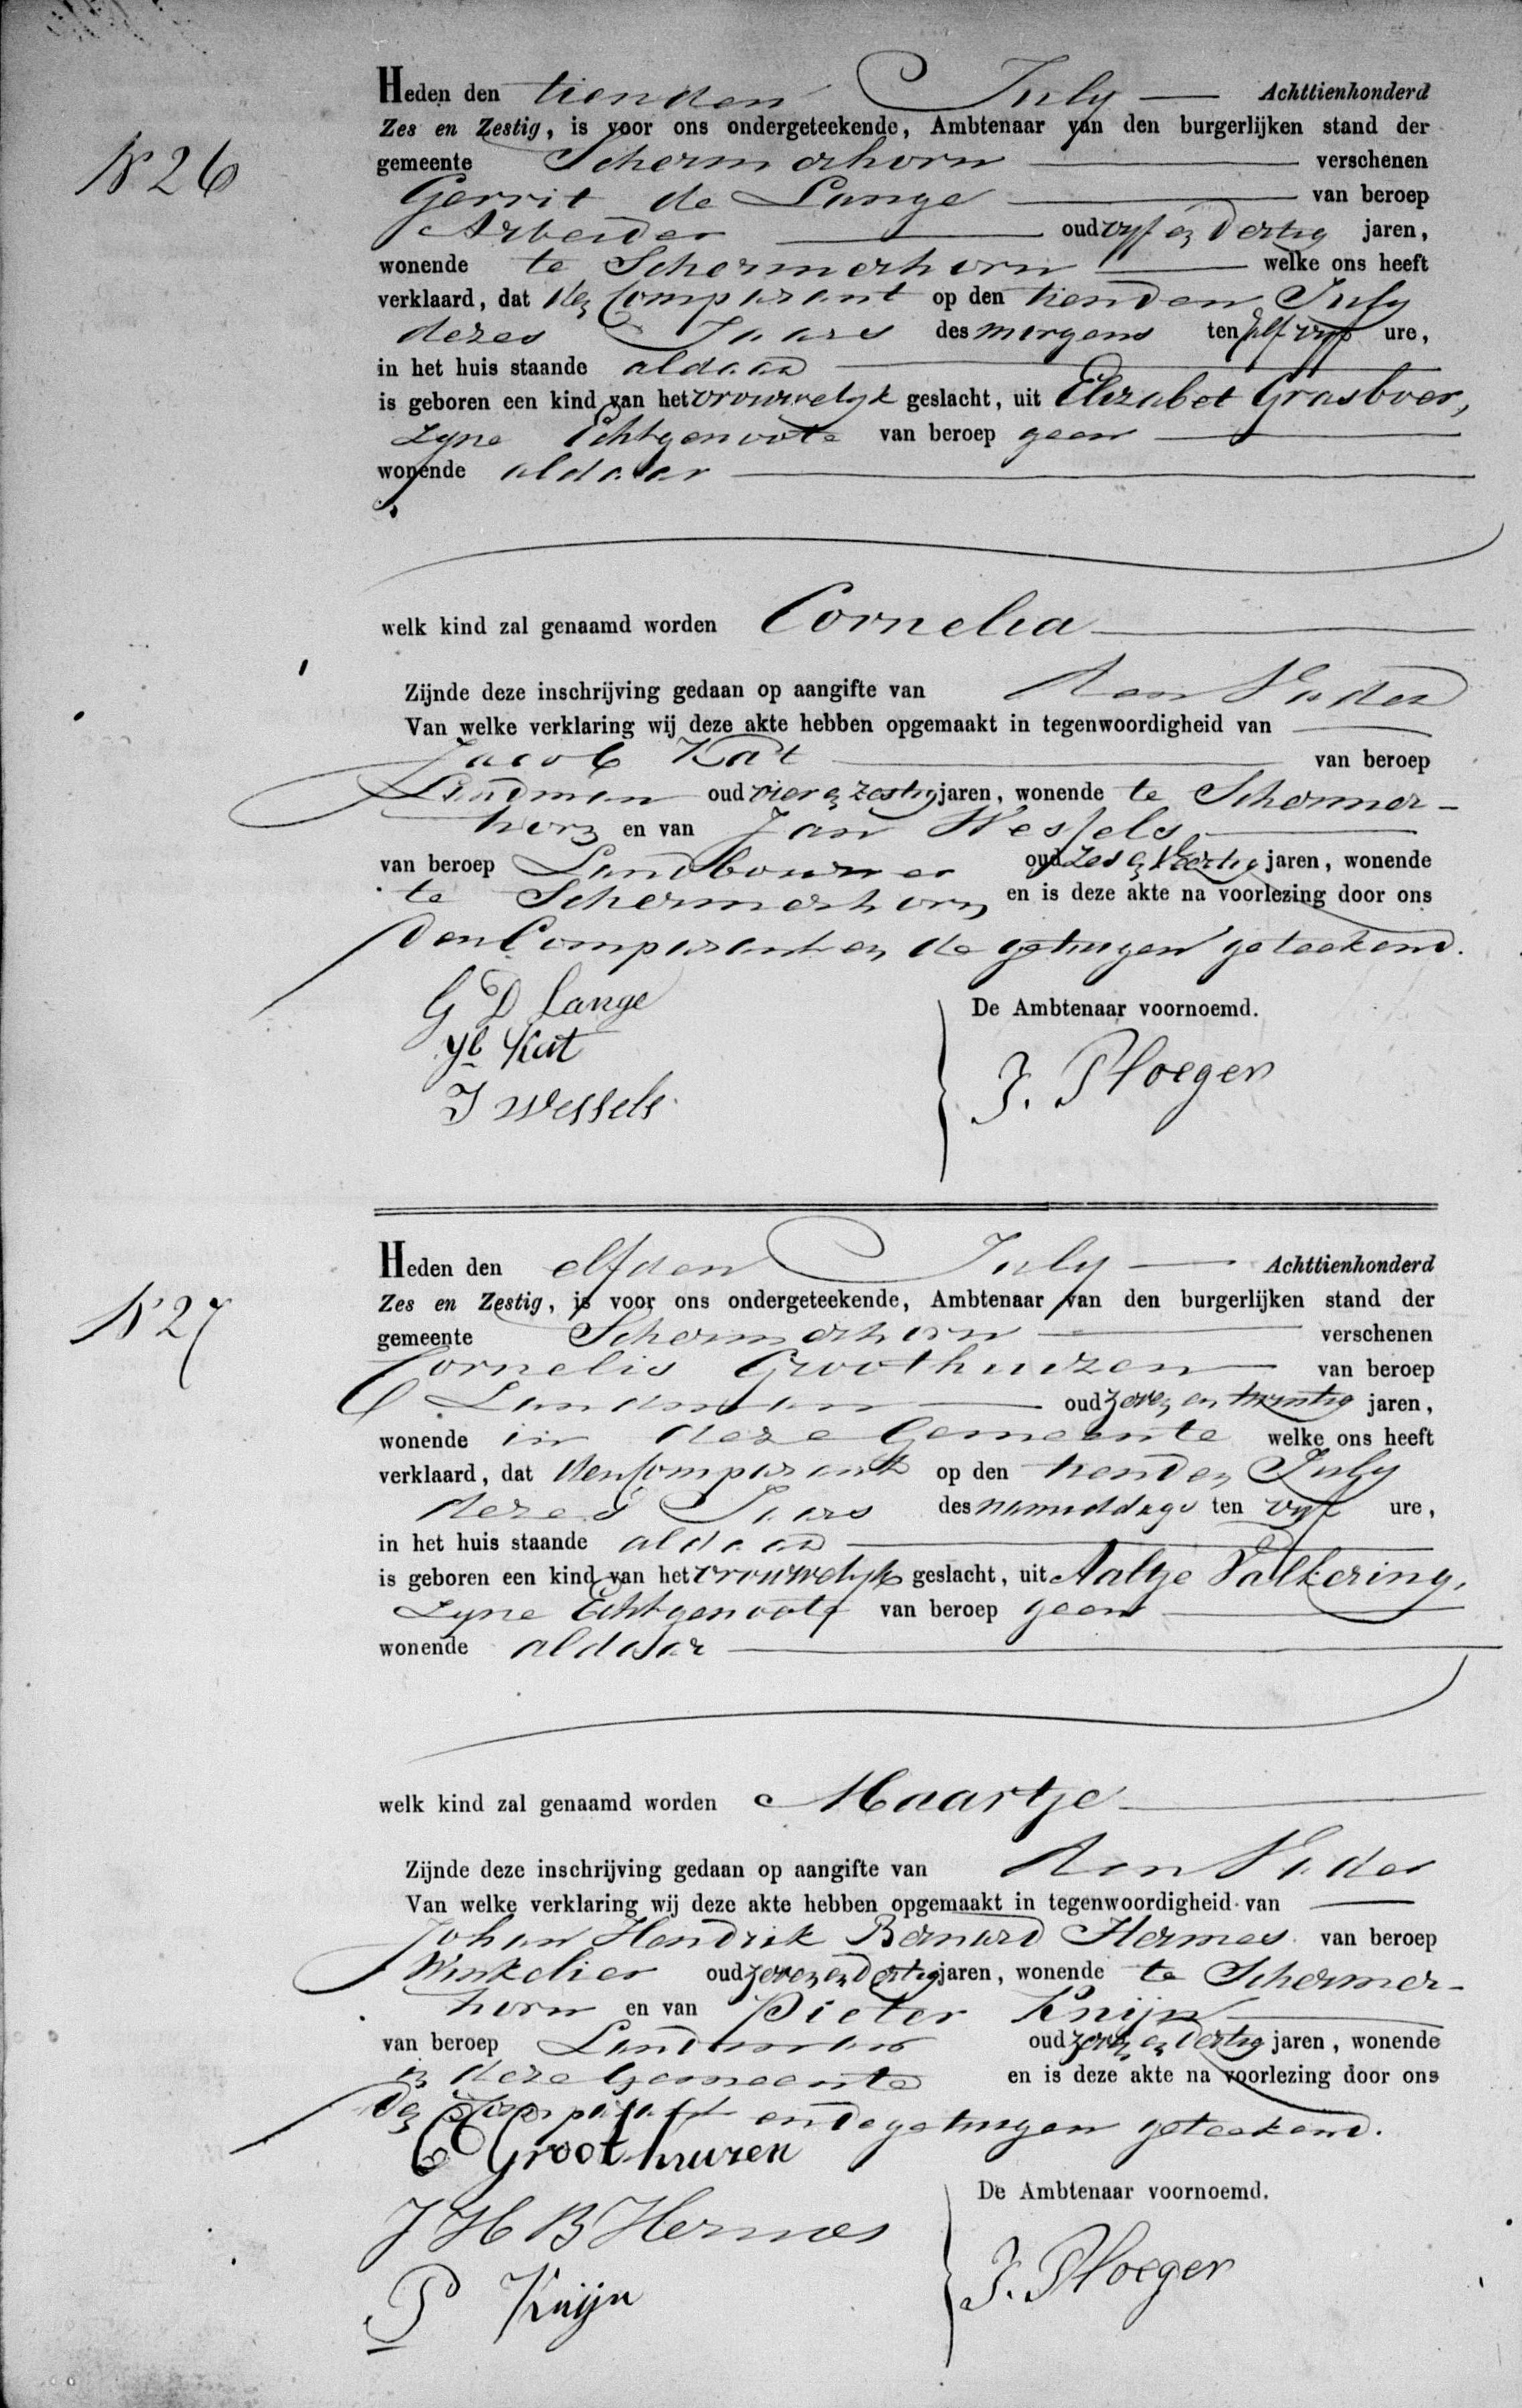 Heden den tienden July Achttienhonderd
Zes en Zestig, is voor ons ondergeteekende, Ambtenaar van den burgerlijken stand der
N 26
gemeente Schermerhorn verschenen
Gerrit de Lange van beroep
Arbeider oud vyf en dertig jaren,
wonende te Schermerhorn welke ons heeft
verklaard, dat den Comparant op den tienden July
dezes Jaars des morgens ten half vyf ure,
in het huis staande aldaar
is geboren een kind van het vrouwelyk geslacht, uit Elizabet Grasboer,
zyne Echtgenoote van beroep geen
wonende aldaar
welk kind zal genaamd worden Cornelia
Zijnde deze inschrijving gedaan op aangifte van den Vader
Van welke verklaring wij deze akte hebben opgemaakt in tegenwoordigheid van
Jacob Kat van beroep
Landman oud vier en zestig jaren, wonende te Schermer-
horn en van Jan Wessels
van beroep Landbouwer oud zes en jaren, wonende
te Schermerhorn en is deze akte na voorlezing door ons
den Comparant en de getuigen geteekend.
G D Lange
Jb Kat
J Wessels
De Ambtenaar voornoemd.
J. Ploeger
Heden den elfden July Achttienhonderd
Zes en Zestig, is voor ons ondergeteekende, Ambtenaar van den burgerlijken stand der
N 27
gemeente Schermerhorn verschenen
Cornelis Groothuizen van beroep
Landman oud zeven en twintig jaren,
wonende in deze Gemeente welke ons heeft
verklaard, dat den Comparant op den tienden July
dezes Jaars des namiddags ten vyf ure,
in het huis staande aldaar
is geboren een kind van het vrouwelyk geslacht, uit Aaltje Valkering,
zyne Echtgenoote van beroep geen
wonende aldaar
welk kind zal genaamd worden Maartje
Zijnde deze inschrijving gedaan op aangifte van den Vader
Van welke verklaring wij deze akte hebben opgemaakt in tegenwoordigheid van
Johan Hendrik Bernard Hermes van beroep
Winkelier oud zeven en dertig jaren, wonende te Schermer-
horn en van Pieter Knijn
van beroep Landman oud zeven en dertig jaren, wonende
in deze Gemeente en is deze akte na voorlezing door ons
den Comparant en de getuigen geteekend.
C Groothuizen
J H B Hermes
P Knijn
De Ambtenaar voornoemd.
J. Ploeger